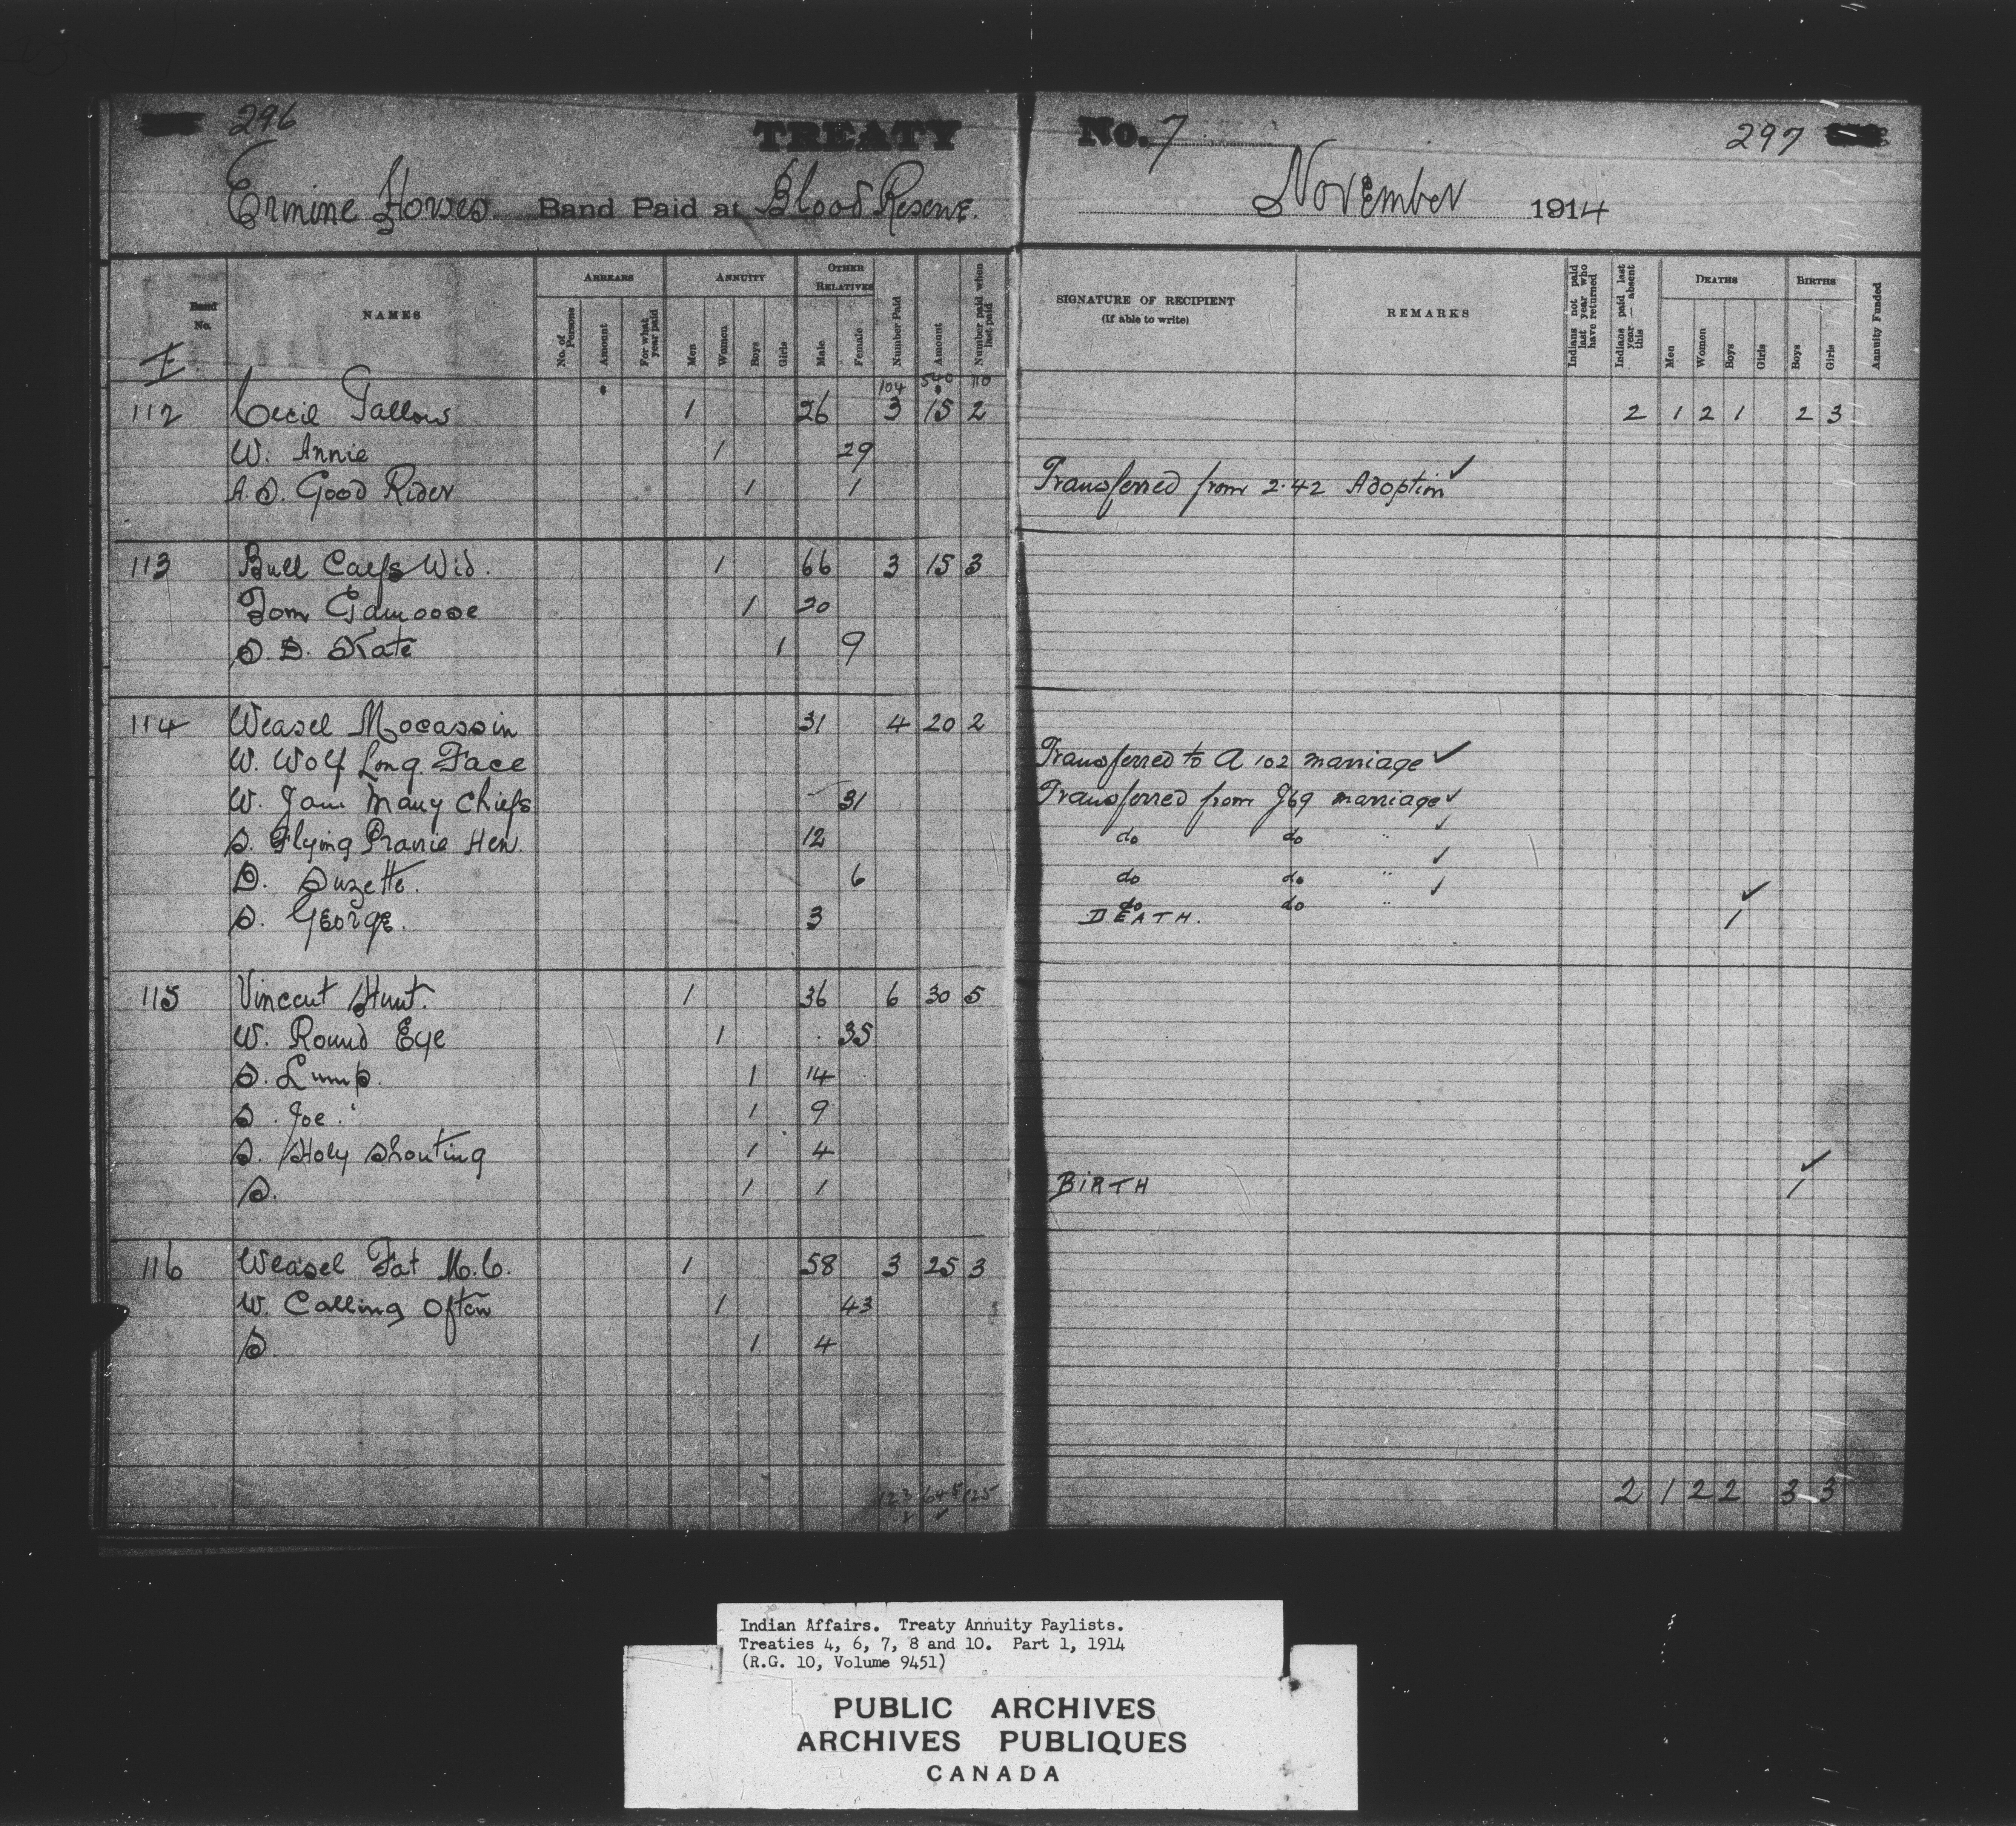 296 TREATY No. 7 297
Ermine Horses Band Paid at Blood Reserve. November 1914
Band No. NAMES ARREARS ANNUITY OTHER RELATIVES Number Paid Amount Number paid when last paid SIGNATURE OF RECIPIENT (If able to write) REMARKS Indians not paid last year who have returned Indians paid last year — absent this DEATHS BIRTHS Annuity Funded
No. of Persons Amount For what year paid Men Women Boys Girls Male Female Men Women Boys Girls Boys Girls
104 540 110
112 Cecil Tallow 1 26 3 15 2 2 1 2 1 2 3
W. Annie 1 29
A.S. Good Rider 1 1 Transferred from 2.42 Adoption ✓
113 Bull Calfs Wid. 1 66 3 15 3
Tom 1 20
S.D. Kate 1 9
114 Weasel Mocassin 31 4 20 2
W. Wolf Long Face Transferred to A 102 marriage ✓
W. Jam Many Chiefs 31 Transferred from J69 marriage ✓
S. Flying Prarie Hen. 12 do do " ✓
D. Suzette. 6 do do " ✓
S. George. 3 do do " ✓
DEATH. 1 ✓
115 Vincent Hunt. 1 36 6 30 5
W. Round Eye 1 35
S. Lump. 1 14
S. Joe. 1 9
S. Holy Shouting 1 4
S. 1 1 BIRTH 1 ✓
116 Weasel Fat M.C. 1 58 3 25 3
W. Calling Often 1 43
S. 1 4
123 645 125 2 1 2 2 3 3
Indian Affairs. Treaty Annuity Paylists.
Treaties 4, 6, 7, 8 and 10. Part 1, 1914
(R.G. 10, Volume 9451)
PUBLIC ARCHIVES
ARCHIVES PUBLIQUES
CANADA